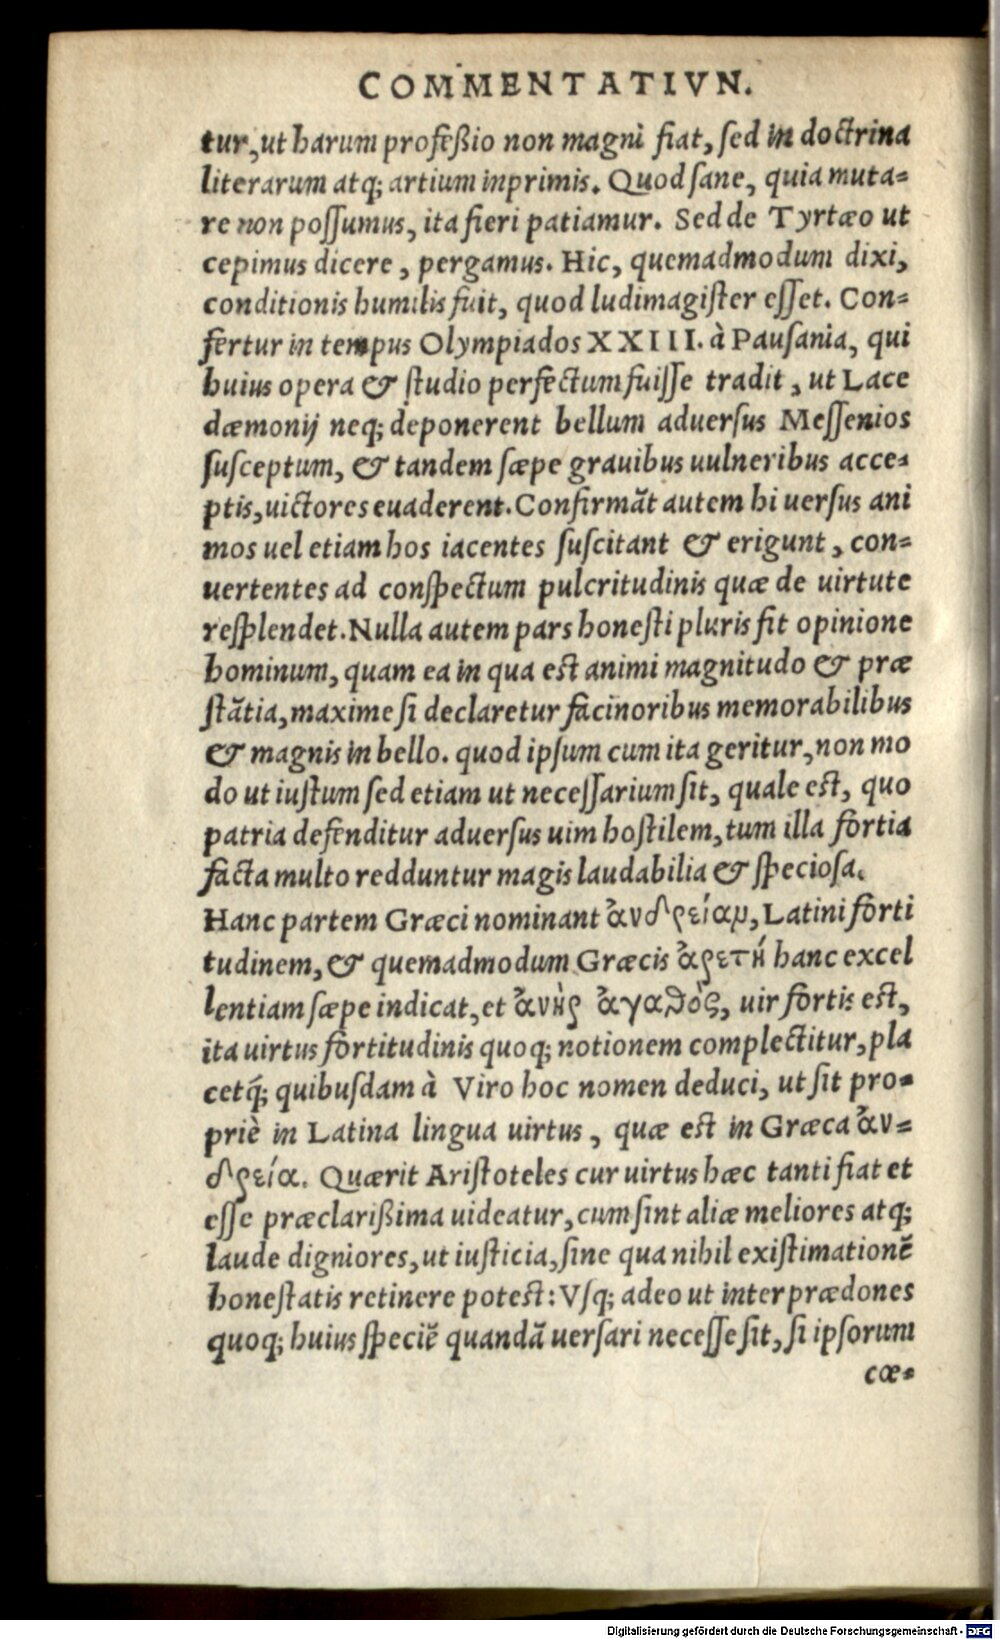 COMMENTATIVN.
tur, ut harum profeßio non magni fiat, ſed in doctrina
literarum atq; artium inprimis. Quod ſane, quia muta=
re non poſſumus, ita fieri patiamur. Sed de Tyrtæo ut
cepimus dicere, pergamus. Hic, quemadmodum dixi,
conditionis humilis fuit, quod ludimagiſter eſſet. Con=
fertur in tempus Olympiados XXIII. à Pauſania, qui
huius opera & ſtudio perfectum fuiſſe tradit, ut Lace
dæmonij neq; deponerent bellum aduerſus Meſſenios
ſuſceptum, & tandem ſæpe grauibus uulneribus acce=
ptis, uictores euaderent. Confirmãt autem hi uerſus ani
mos uel etiam hos iacentes ſuſcitant & erigunt, con=
uertentes ad conſpectum pulcritudinis quæ de uirtute
reſplendet. Nulla autem pars honeſti pluris fit opinione
hominum, quam ea in qua eſt animi magnitudo & præ
ſtãtia, maxime ſi declaretur facinoribus memorabilibus
& magnis in bello. quod ipſum cum ita geritur, non mo
do ut iuſtum ſed etiam ut neceſſarium ſit, quale eſt, quo
patria defenditur aduerſus uim hoſtilem, tum illa fortia
facta multo redduntur magis laudabilia & ſpecioſa.
Hanc partem Græci nominant ἀνδρείαν, Latini forti
tudinem, & quemadmodum Græcis ἀρετή hanc excel
lentiam ſæpe indicat, et ἀνὴρ ἀγαθὸς, uir fortis eſt,
ita uirtus fortitudinis quoq; notionem complectitur, pla
cetq́; quibuſdam à Viro hoc nomen deduci, ut ſit pro=
priè in Latina lingua uirtus, quæ eſt in Græca ἀν=
δρεία. Quærit Ariſtoteles cur uirtus hæc tanti fiat et
eſſe præclarißima uideatur, cum ſint aliæ meliores atq;
laude digniores, ut iuſticia, ſine qua nihil exiſtimationẽ
honeſtatis retinere poteſt: Vſq; adeo ut inter prædones
quoq; huius ſpeciẽ quandã uerſari neceſſe ſit, ſi ipſorum
cœ=
Digitalisierung gefördert durch die Deutsche Forschungsgemeinschaft - DFG